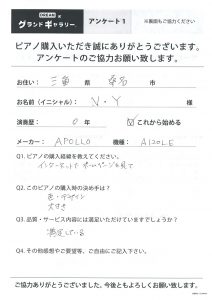 グランドギャラリー アンケート1 ※裏面もご協力ください
ピアノ購入いただき誠にありがとうございます。
アンケートのご協力お願い致します。
お住い： 三重 県 桑名 市
お名前（イニシャル）： V・Y 様
演奏歴： 0 年 ☑ これから始める
メーカー： APOLLO 機種： A120LE
Q1. ピアノの購入経緯を教えてください。
インターネットで ホームページを見て
Q2. このピアノの購入時の決め手は？
色・デザイン
大きさ
Q3. 品質・サービス内容には満足いただけていますでしょうか？
満足している
Q4. その他感想やご要望等、ご自由にご記入下さい。
ご協力ありがとうございました。今後ともよろしくお願い致します。